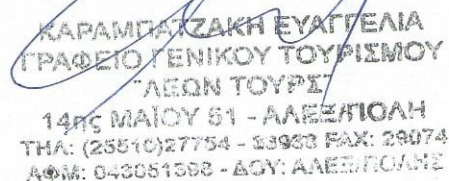 ΚΑΡΑΜΠΑΤΖΑΚΗ ΕΥΑΓΓΕΛΙΑ
ΓΡΑΦΕΙΟ ΓΕΝΙΚΟΥ ΤΟΥΡΙΣΜΟΥ
"ΛΕΩΝ ΤΟΥΡΣ"
14ης ΜΑΪΟΥ 61 - ΑΛΕΞ/ΠΟΛΗ
ΤΗΛ: (25510)27754 - FAX: 29074
ΑΦΜ: 043051398 - ΔΟΥ: ΑΛΕΞ/ΠΟΛΗΣ